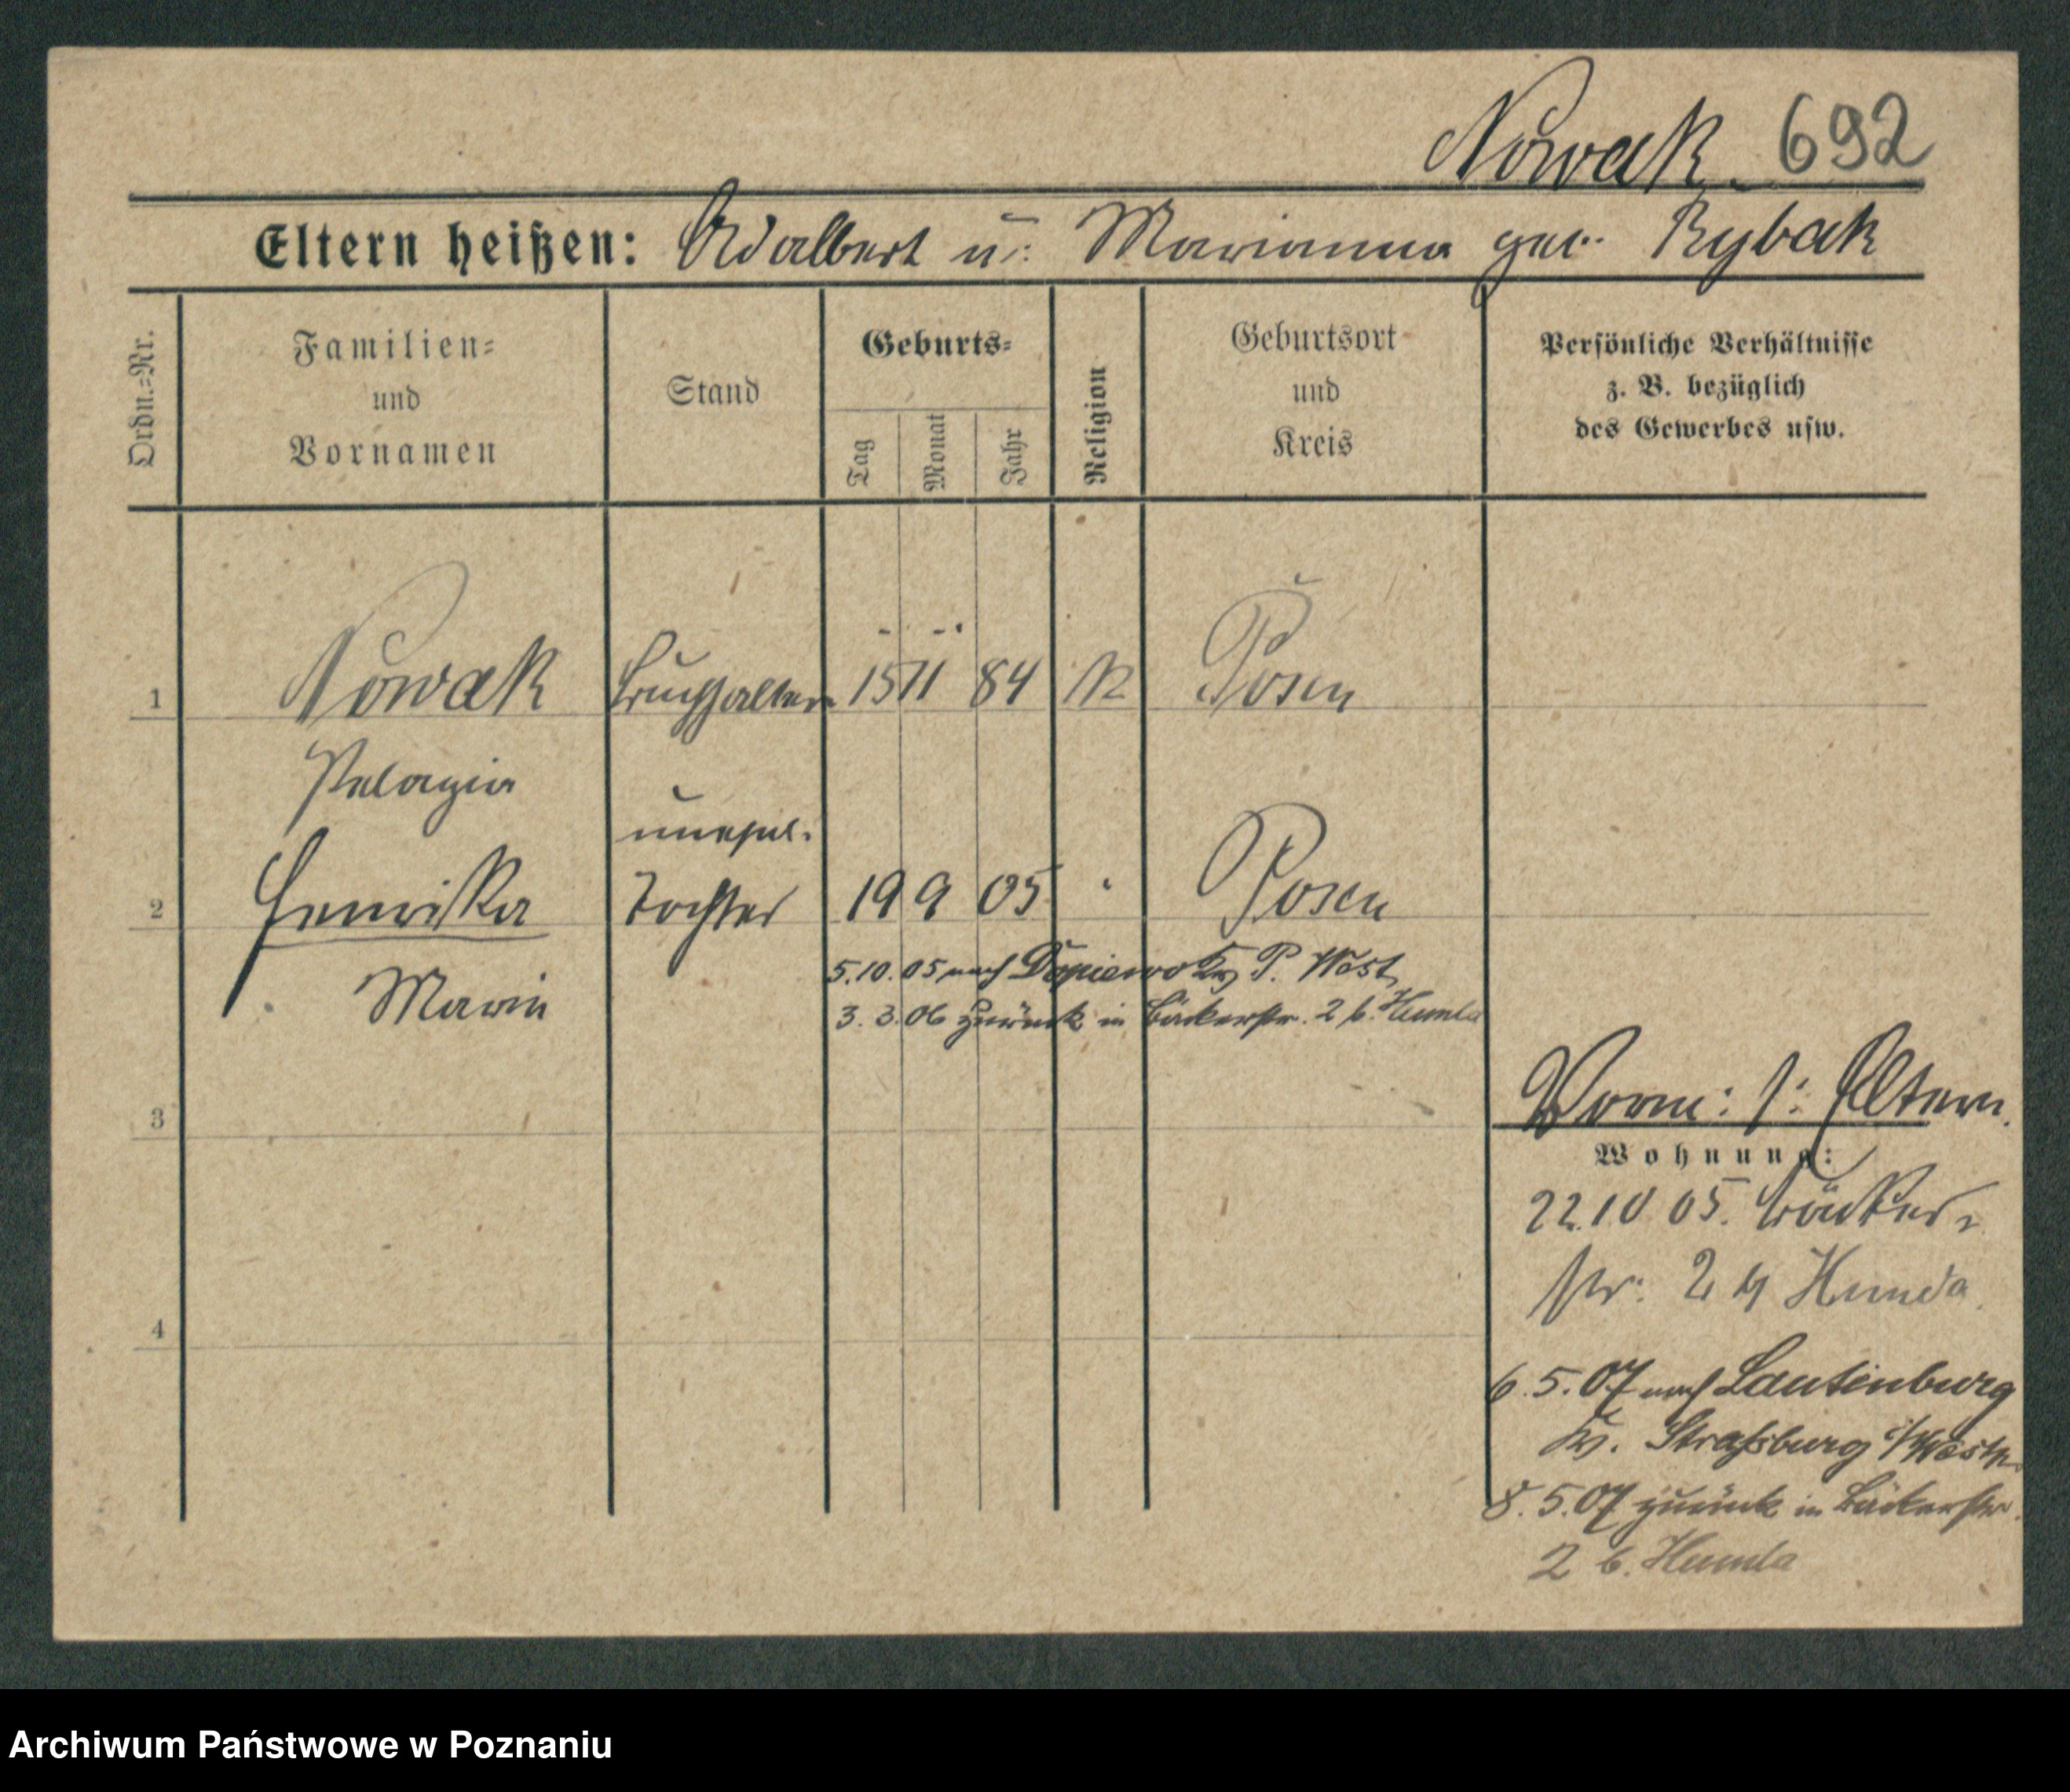 Nowak 692
Eltern heißen: Adalbert u: Marianna geb. Rybak
Ordn.-Nr.
Familien-
und
Vornamen
Stand
Geburts-
Tag
Monat
Jahr
Religion
Geburtsort
und
Kreis
Persönliche Verhältnisse
z. B. bezüglich
des Gewerbes usw.
1 Nowak Buchhalterin 15 11 84 K Posen
Pelagia
unehel.
2 Henrika Tochter 19 9 05 " Posen
5.10.05 nach Dopiewo Kr P. West
Maria
3.3.06 zurück in Bäckerstr. 2 b. Humla
3
Vorm: s: Eltern.
Wohnung:
22.10 05. Bäcker-
str. 2 b Humla
4
6.5.07 nach Lautenburg
Kr. Straßburg i/Westpr
8.5.07 zurück in Bäckerstr.
2 b. Humla
Archiwum Państwowe w Poznaniu